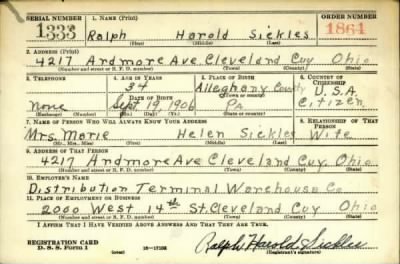 SERIAL NUMBER 1. NAME (Print) ORDER NUMBER
1333 Ralph Harold Sickles 1864
(First) (Middle) (Last)
2. ADDRESS (Print)
4217 Ardmore Ave. Cleveland Cuy Ohio
(Number and street or R. F. D. number) (Town) (County) (State)
3. TELEPHONE 4. AGE IN YEARS 5. PLACE OF BIRTH 6. COUNTRY OF CITIZENSHIP
34 Alleghany County U.S.A.
DATE OF BIRTH (Town or county)
none Sept. 19, 1906 Pa Citizen
(Exchange) (Number) (Mo.) (Day) (Yr.) (State or country)
7. NAME OF PERSON WHO WILL ALWAYS KNOW YOUR ADDRESS 8. RELATIONSHIP OF THAT PERSON
Mrs. Marie Helen Sickles Wife
(Mr., Mrs., Miss) (First) (Middle) (Last)
9. ADDRESS OF THAT PERSON
4217 Ardmore Ave Cleveland Cuy. Ohio
(Number and street or R. F. D. number) (Town) (County) (State)
10. EMPLOYER'S NAME
Distribution Terminal Warehouse Co
11. PLACE OF EMPLOYMENT OR BUSINESS
2000 West 14th St. Cleveland Cuy Ohio
(Number and street or R. F. D. number) (Town) (County) (State)
I AFFIRM THAT I HAVE VERIFIED ABOVE ANSWERS AND THAT THEY ARE TRUE.
REGISTRATION CARD
D. S. S. Form 1 (over) Ralph Harold Sickles
(Registrant's signature)